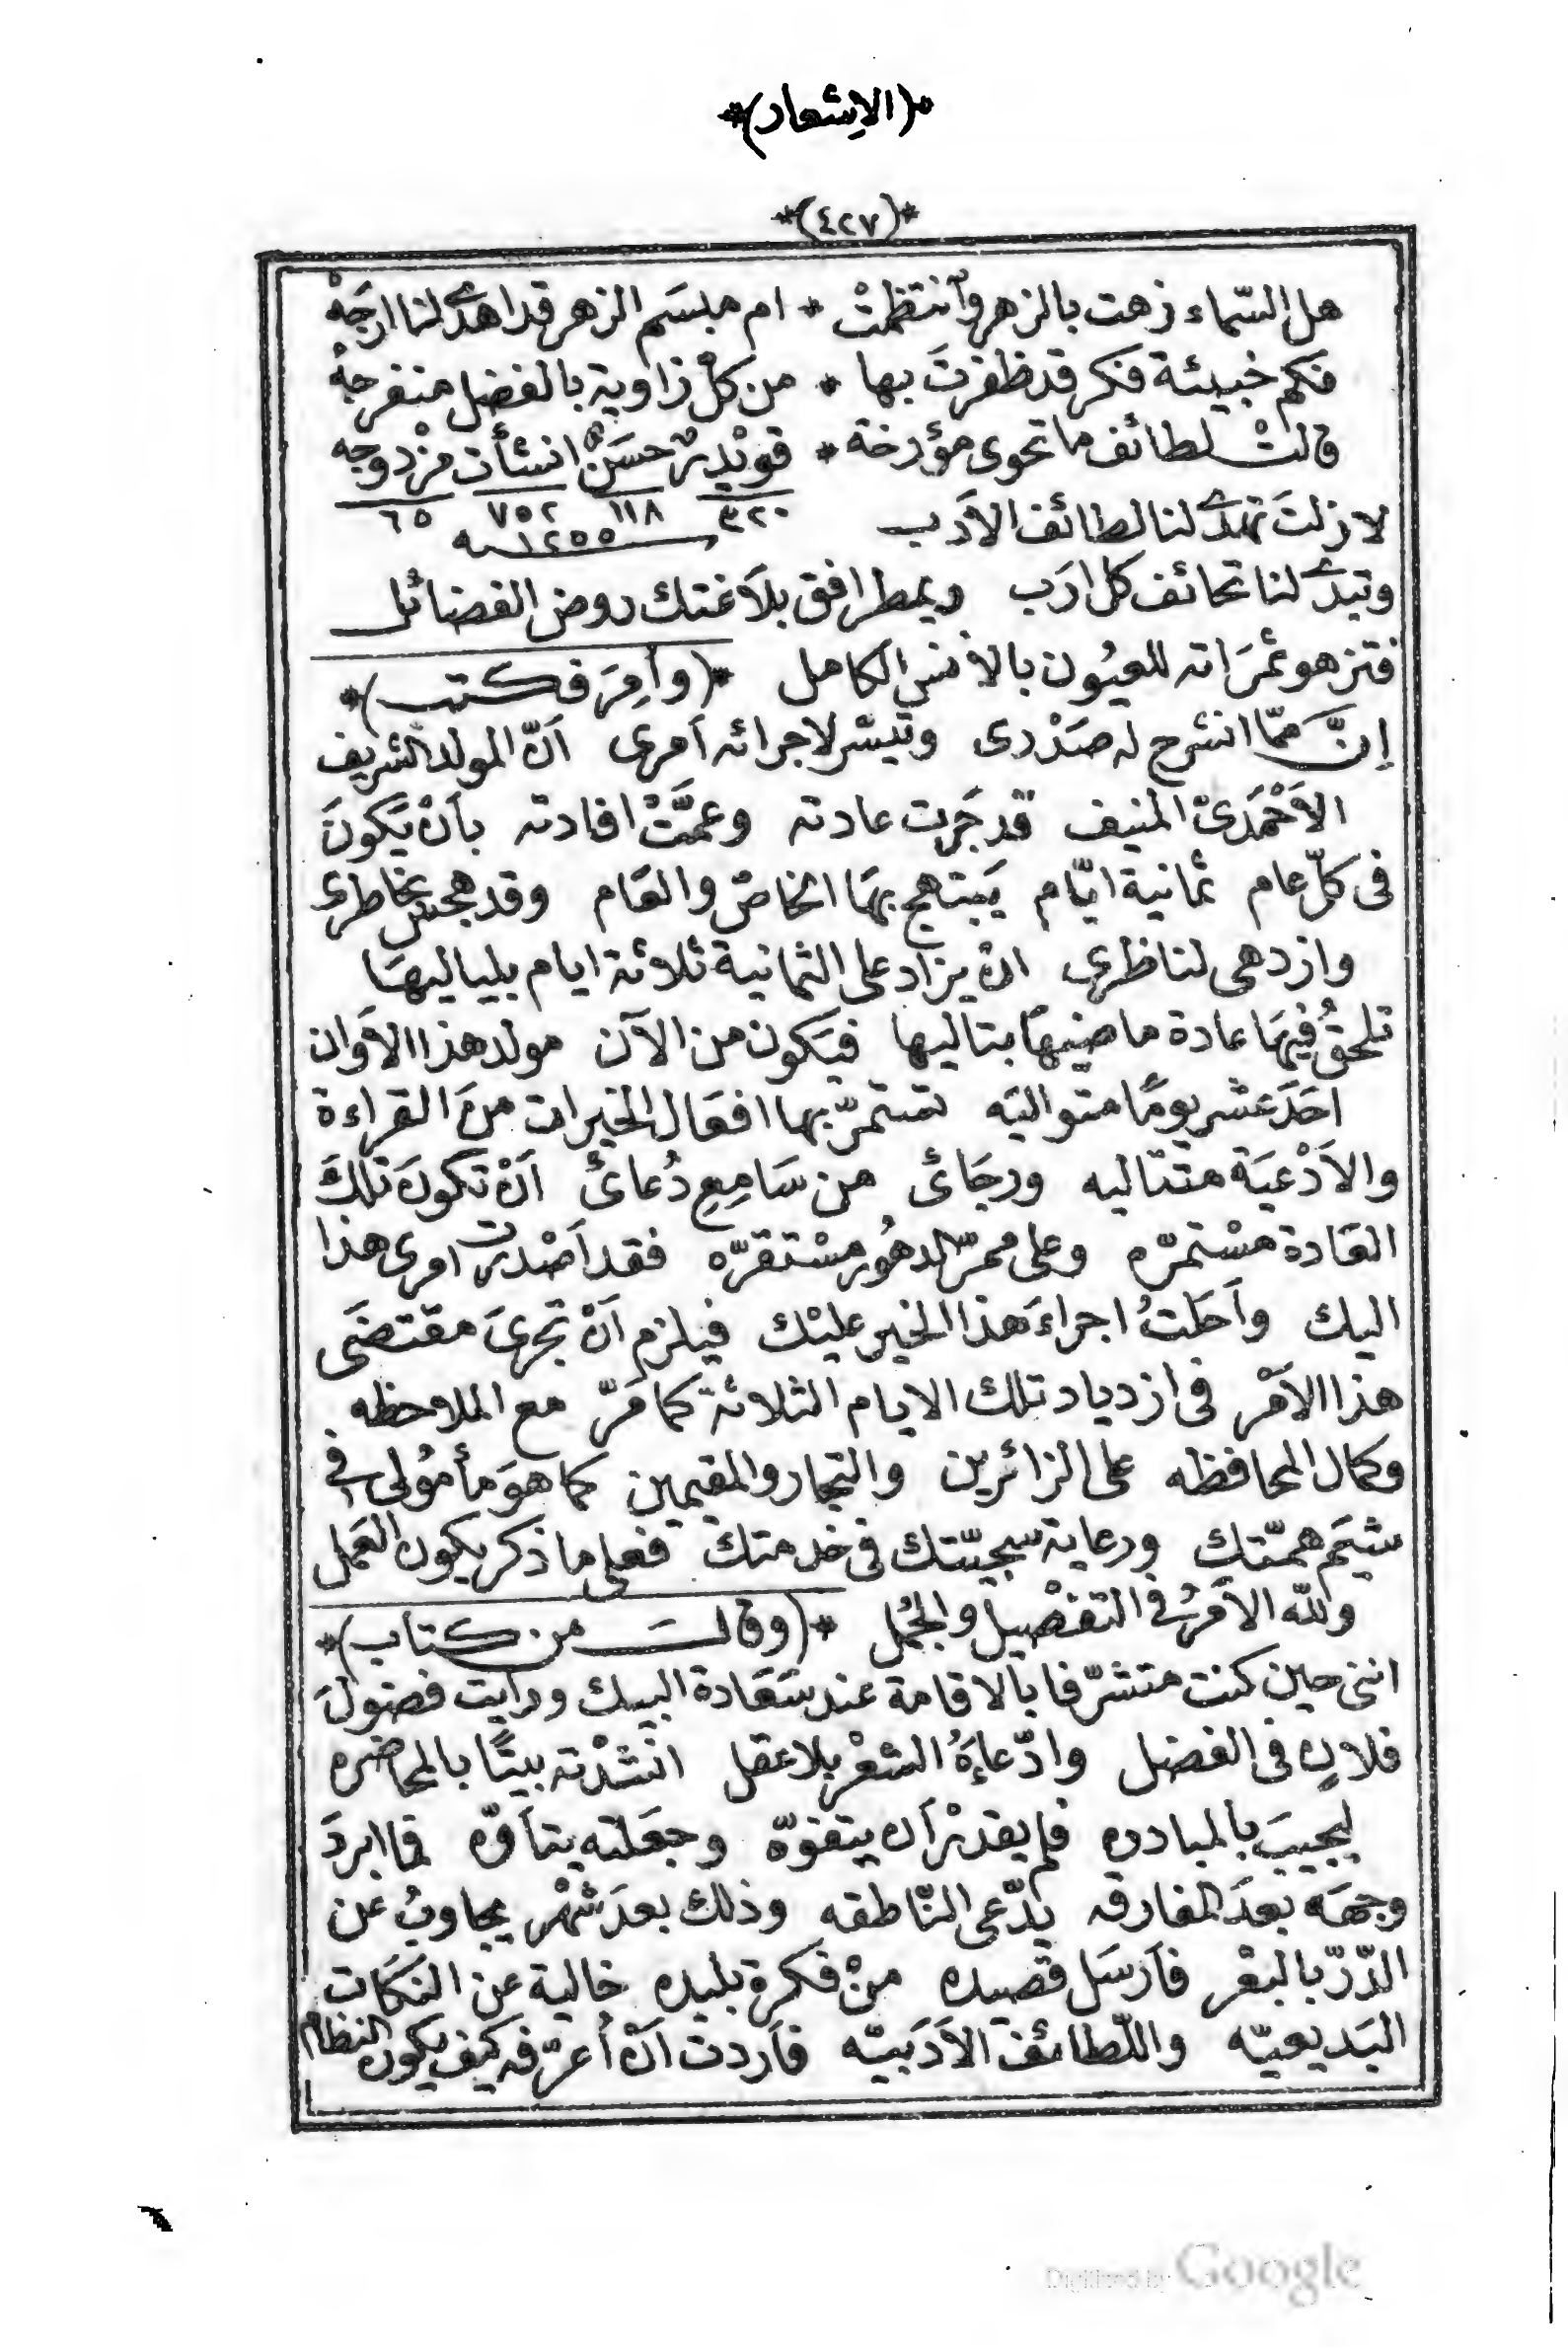 *(الاشعار)*
*(٤٢٧)*
هل السّماء زهت بالزهر وانتظمتْ * ام مبسَم الزهر قد اهدى لنا ارَجَهْ
فكم خبيئة فكر قد ظفرتَ بها * من كلّ زاوية بالفضل منفرجهْ
قالتْ لطائف ما تحوى مؤرخة * قويْدرٌ حسَنٌ انشأت مزْدوجه
٣٢٠ ١١٨ ٧٥٢ ٦٥
لا زلتَ تهدى لنا لطائف الأدب
١٢٥٥ سنه
وتبدى لنا تحائف كل ارَب ويمطر افق بلاَغتك روض الفضائل
فتزهو ثمَرَاته للعيُون بالأنس الكامل *(وأمِرَ فكتب)*
إنَّ ممّا انشرح له صَدْرى وتيسّر لاجرائه أمرى اَنّ المولد الشريف
الاَحْمَدىّ المنيف قد جَرت عادته وعمَّتْ افادته بأنْ يَكونَ
فى كلّ عام ثمانية ايّام يَبتهج بهَا الخاصّ والعَام وقد هجس بخاطرى
وازدهى لناظرى انْ يزاد على الثمانية ثلاثة ايام بلياليهَا
تلحقُ فيهَا عادة ماضيهَا بتاليها فيَكون من الآن مولد هذا الأوَان
احَدَ عشر يومًا متواليَه تستمرّ بها افعَال الخيرات منَ القراءة
والاَدْعيَة متتاليه ورجَائى من سَامِعِ دُعائى اَنْ تكونَ تلكَ
العَادة مسْتمرّه وعلى ممرّ الدهُور مسْتقرّه فقد اَصْدرت امرى هذا
اليك واَحَلتُ اجراءَ هذا الخير عليْك فيلزم اَنْ تجرىَ مقتضَى
هذا الاَمْر فى ازدياد تلك الايام الثلاثة كما مَرّ مع الملاحظه
وكمال المحافظه على الزائرين والتجار والمقيمين كما هوَ مأمُولى فى
شيَم همّتك ورعاية سجيّتك فى خدمتك فعلى ما ذكر يكون العَمل
ولله الاَمرُ فى التفصْيل والجُمل *(وقالت من كتاب)*
اننى حين كنت متشرّفا بالاقامة عند سَعَادة البيك ورايت فضولَ
فلانٍ فى الفضل وادّعاءَهُ الشعْر بلا عقل انشدْته بيتًا بالمحاضره
ليجيبَ بالمبادره فلم يقدرْ اَن يتفوّه وجعَلته يتأوّه فما ابردَ
وجهَه بعدَ المفارقه يدّعى النّاطقه وذلك بعدَ شهْر يجاوبُ عن
الدّرّ بالبعْر فاَرسَل قصيده منْ فكرة بليده خالية عن النكَات
البَديعيّه واللّطائف الأدَبيّه فاَردت اَنْ اُعرّفه كيْف يكون النظام
Digitized by Google